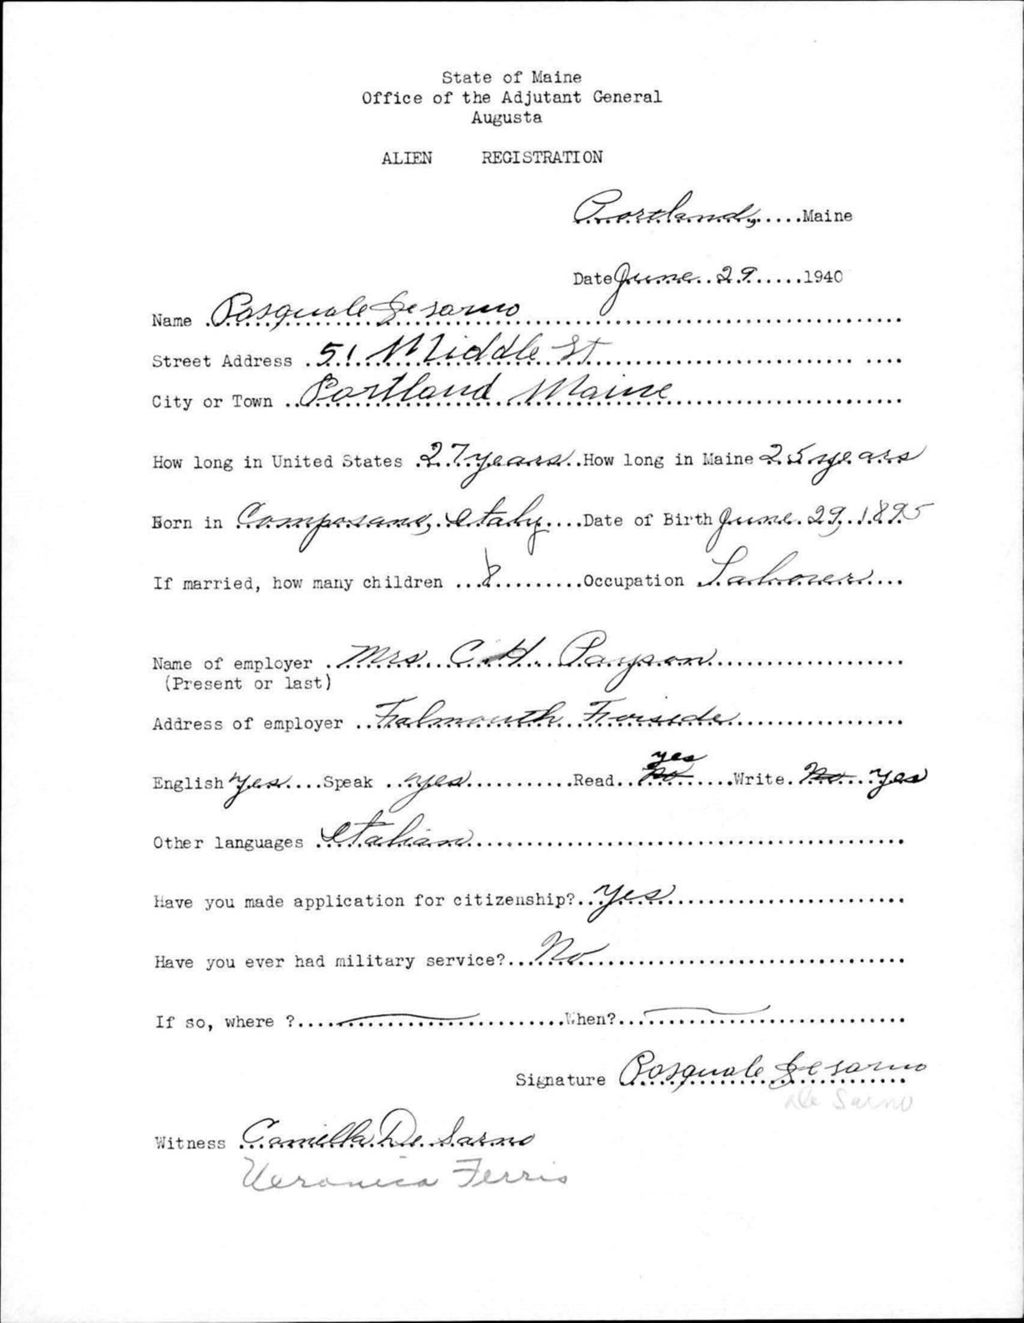 State of Maine
Office of the Adjutant General
Augusta
ALIEN REGISTRATION
Portland, Maine
Date June 29 1940
Name Pasquale De sarno
Street Address 51 Middle St
City or Town Portland Maine
How long in United States 27 years How long in Maine 25 years
Born in Composano, Italy Date of Birth June 29, 1895
If married, how many children 8 Occupation Laborer
Name of employer Mrs C. H. Payson
(Present or last)
Address of employer Falmouth Foreside
yes
English Yes Speak yes Read No Write No yes
Other languages Italian
Have you made application for citizenship? Yes
Have you ever had military service? No
If so, where ? When?
Signature Pasquale De sarno
De Sarno
Witness Camilla De Sarno
Veronica Ferris